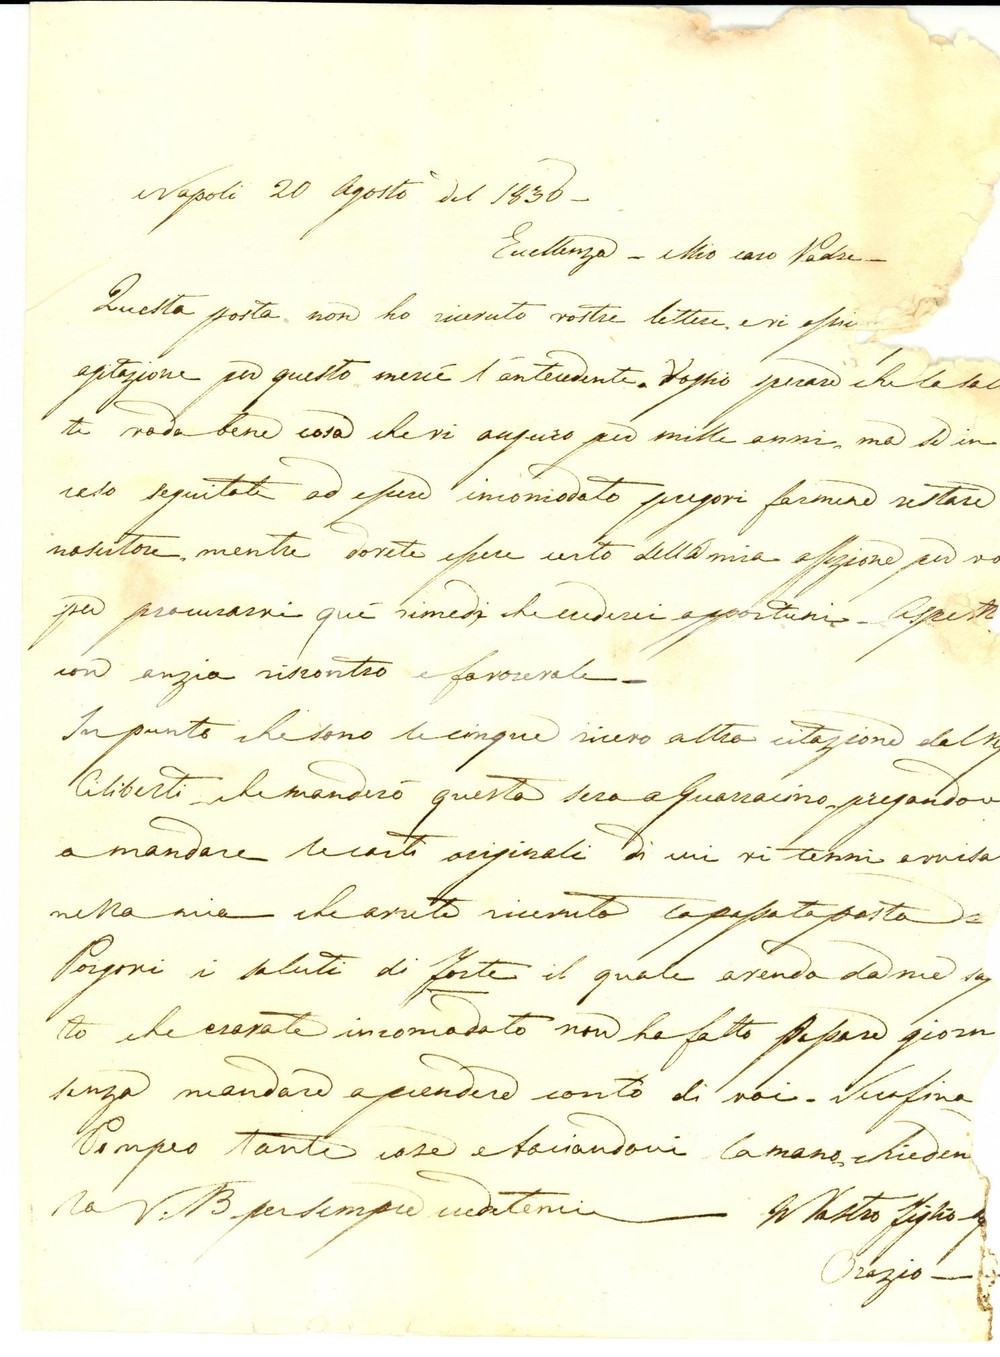 Napoli 20 Agosto del 1830 -
Eccellenza - Mio caro Padre -
Questa posta non ho ricevuto vostre lettere, e vi
agitazione per questo mercè l'antecedente. Voglio sperare che la sal
te vada bene cosa che vi auguro per mille anni, ma se in
caso seguitate ad essere incomodato pregovi farmene restare
mentre dovete essere certo della mia affezione per vo
per procurarvi què rimedj che crederei opportuni - Aspetto
con anzia riscontro e favorevole -
In punto che sono le cinque ricevo altra citazione del
Ciliberti, che manderò questa sera a Guarracino, pregando
a mandare le carte originali di cui vi tenni avvisa
nella mia che avrete ricevuta la passata posta -
Porgovi i saluti di Forte il quale avendo da me sa
to che eravate incomodato non ha fatto passare giorn
senza mandare a prendere conto di voi - Serafina
Pompeo tante cose e baciandovi la mano, chieden
la V. B. per sempre credetemi
Vostro Figlio
Orazio -